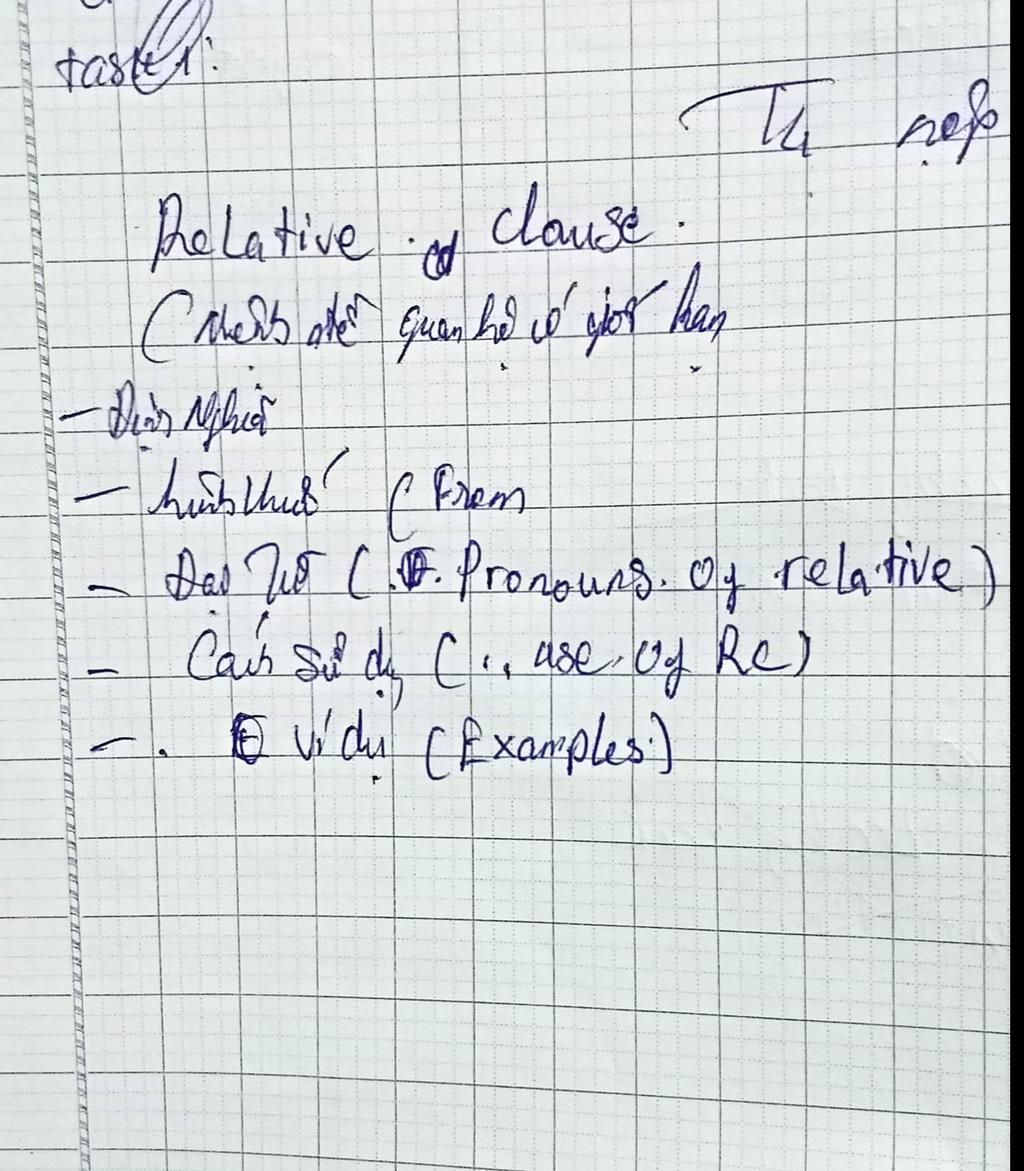 task 1:
T4 nộp
Relative clause.
(Mệnh đề quan hệ có giới hạn
- Định Nghĩa
- hình thức (From
- Đại từ (Pronouns. Of relative)
- Cách sử dụng (.. use. Of RC)
- . Ví dụ (Examples.)